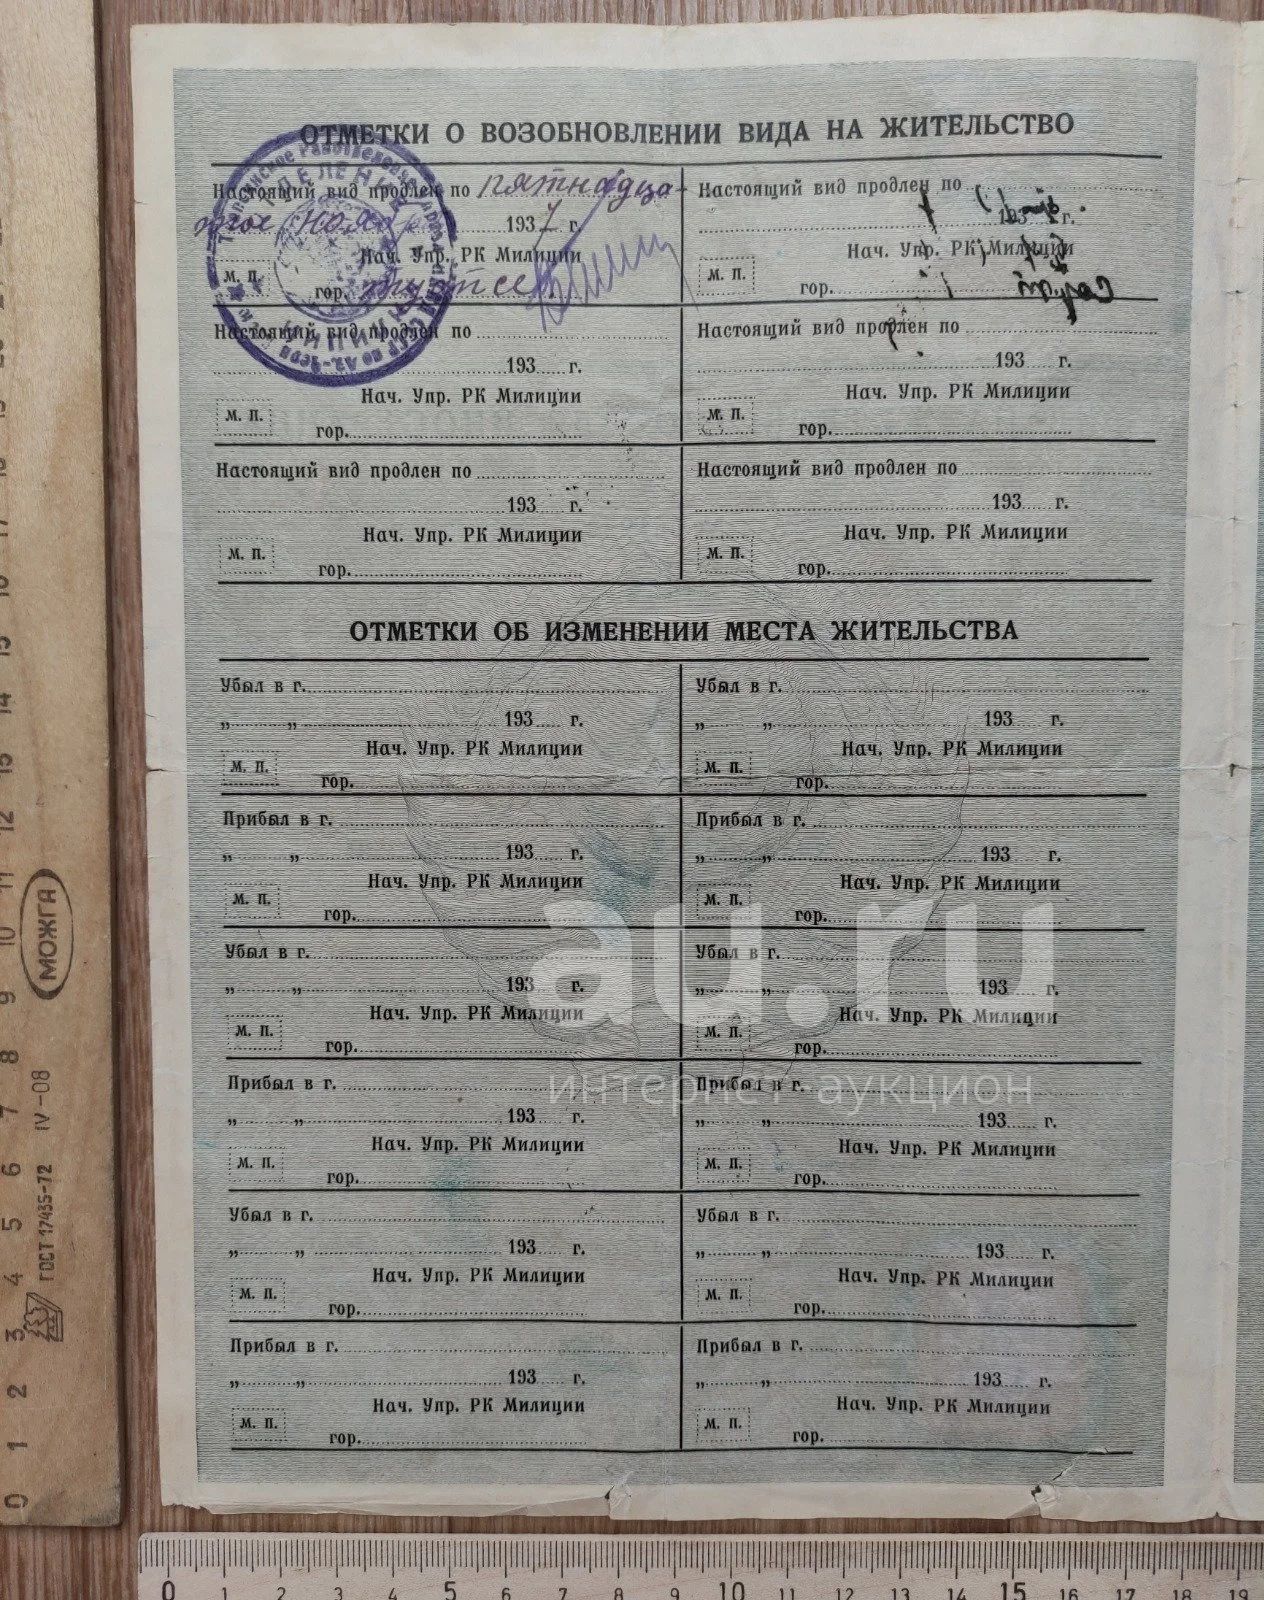 ОТМЕТКИ О ВОЗОБНОВЛЕНИИ ВИДА НА ЖИТЕЛЬСТВО
Настоящий вид продлен по пятнадца-
тое нояб 1937 г.
Нач. Упр. РК Милиции
М. П.
гор. Туапсе
Настоящий вид продлен по
193 г.
Нач. Упр. РК Милиции
М. П.
гор.
Настоящий вид продлен по
193 г.
Нач. Упр. РК Милиции
М. П.
гор.
Настоящий вид продлен по
193 г.
Нач. Упр. РК Милиции
М. П.
гор.
Настоящий вид продлен по
193 г.
Нач. Упр. РК Милиции
М. П.
гор.
Настоящий вид продлен по
193 г.
Нач. Упр. РК Милиции
М. П.
гор.
ОТМЕТКИ ОБ ИЗМЕНЕНИИ МЕСТА ЖИТЕЛЬСТВА
Убыл в г.
„ „ 193 г.
Нач. Упр. РК Милиции
М. П.
гор.
Убыл в г.
„ „ 193 г.
Нач. Упр. РК Милиции
М. П.
гор.
Прибыл в г.
„ „ 193 г.
Нач. Упр. РК Милиции
М. П.
гор.
Прибыл в г.
„ „ 193 г.
Нач. Упр. РК Милиции
М. П.
гор.
Убыл в г.
„ „ 193 г.
Нач. Упр. РК Милиции
М. П.
гор.
Убыл в г.
„ „ 193 г.
Нач. Упр. РК Милиции
М. П.
гор.
Прибыл в г.
„ „ 193 г.
Нач. Упр. РК Милиции
М. П.
гор.
Прибыл в г.
„ „ 193 г.
Нач. Упр. РК Милиции
М. П.
гор.
Убыл в г.
„ „ 193 г.
Нач. Упр. РК Милиции
М. П.
гор.
Убыл в г.
„ „ 193 г.
Нач. Упр. РК Милиции
М. П.
гор.
Прибыл в г.
„ „ 193 г.
Нач. Упр. РК Милиции
М. П.
гор.
Прибыл в г.
„ „ 193 г.
Нач. Упр. РК Милиции
М. П.
гор.
au.ru
интернет-аукцион
МОЖГА
ГОСТ 17435-72 IV-08
0 1 2 3 4 5 6 7 8 9 10 11 12 13 14 15 16 17
0 1 2 3 4 5 6 7 8 9 10 11 12 13 14 15 16 17 18 19